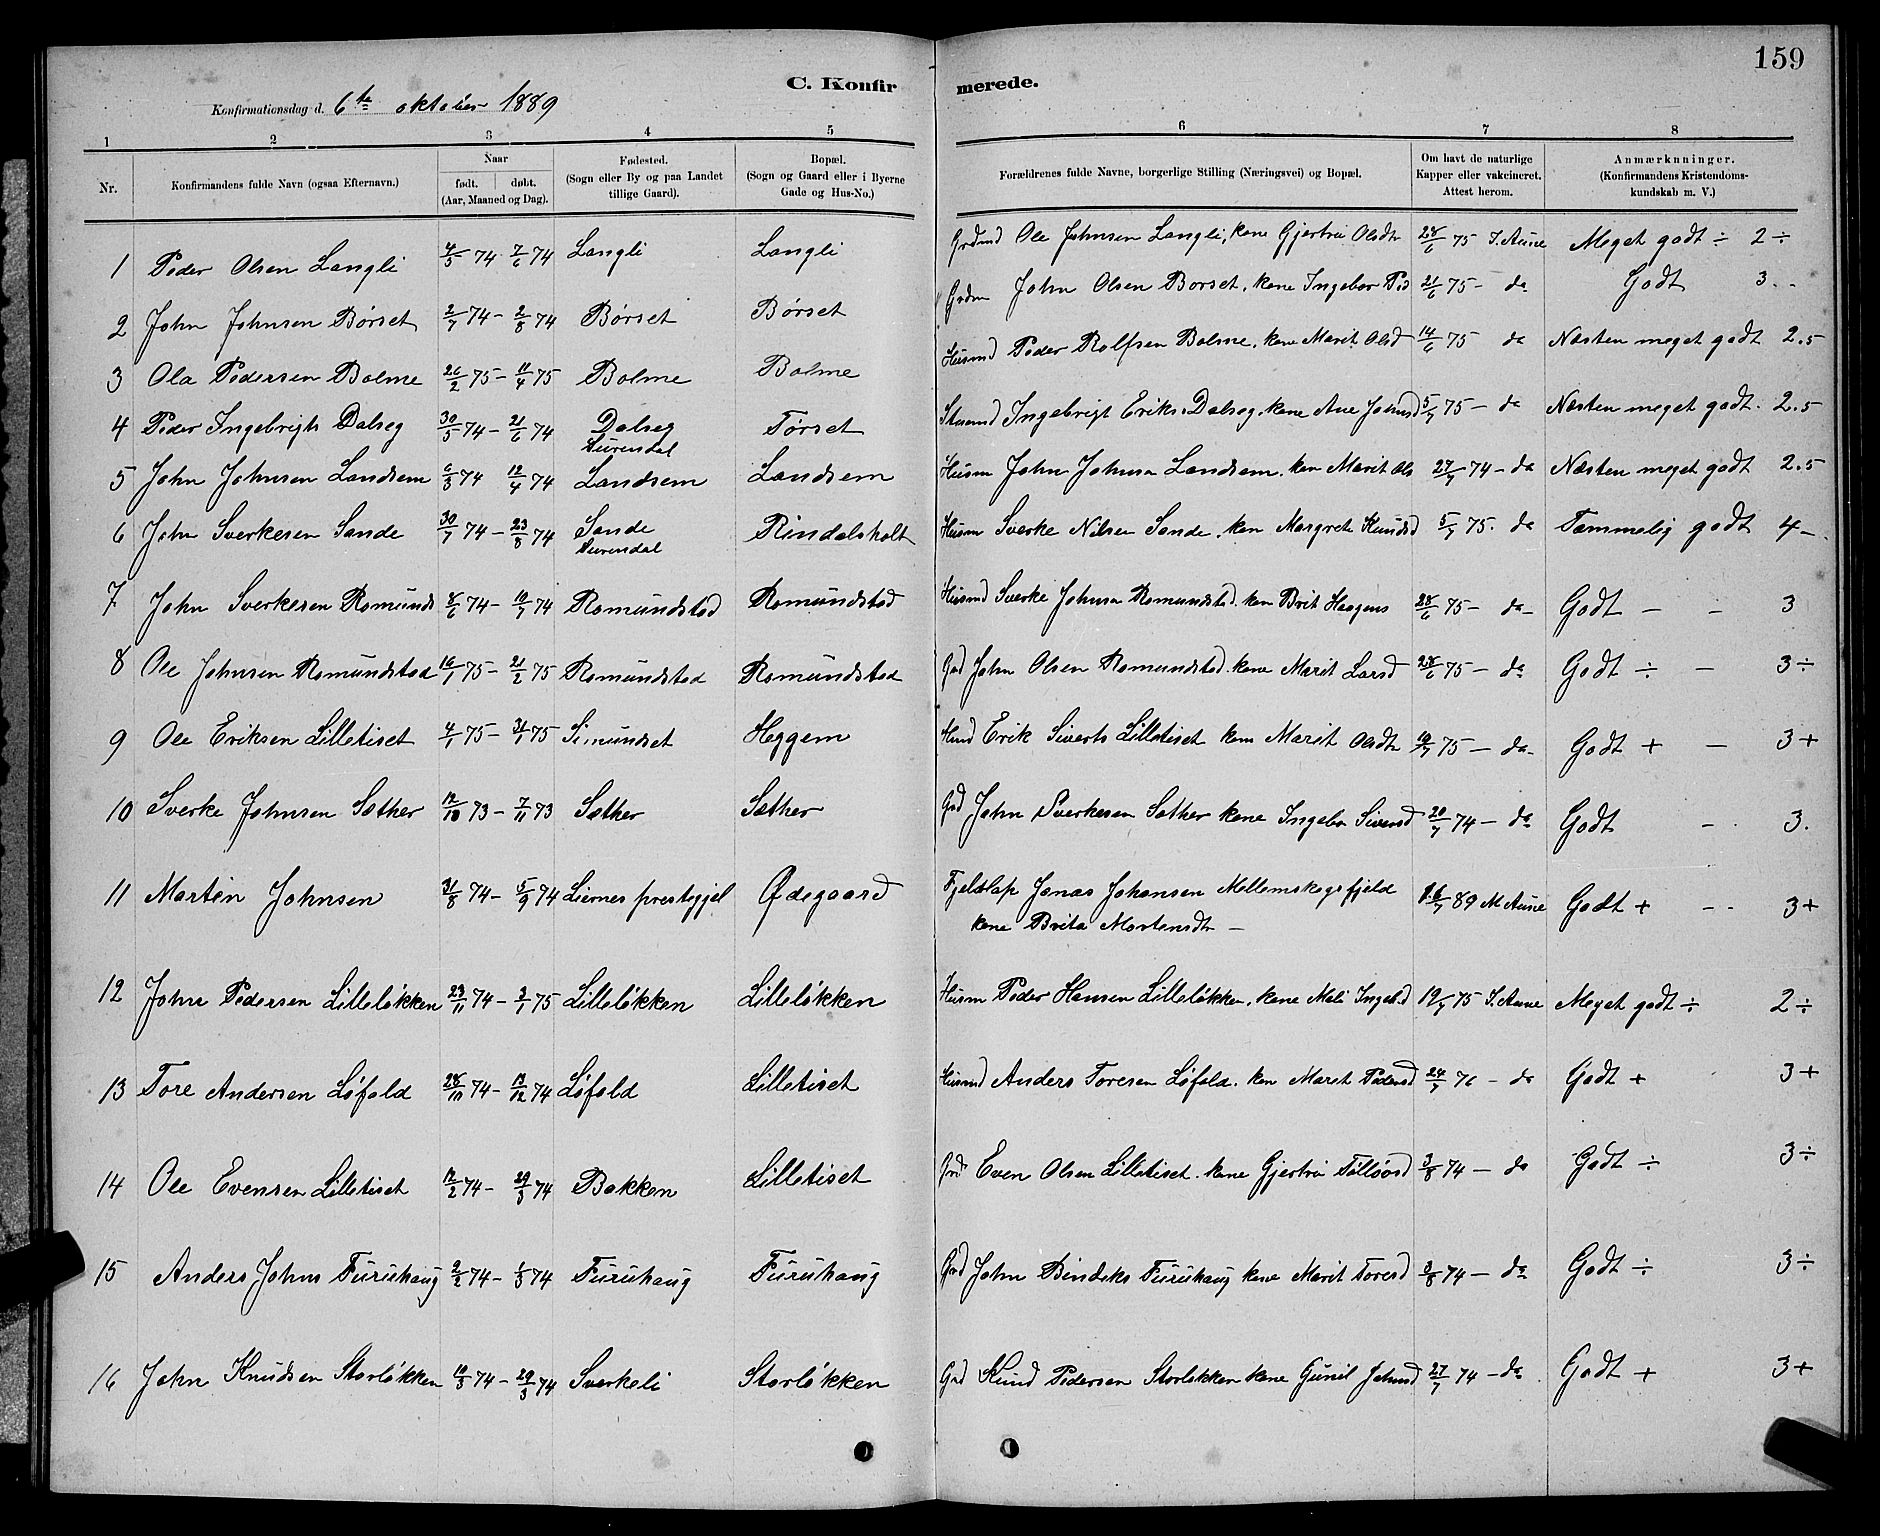 159
C. Konfirmerede.
Konfirmationsdag d. 6te oktober 1889
1 2 3 4 5 6 7 8
Nr. Konfirmandens fulde Navn (ogsaa Efternavn.) Naar født. døbt. (Aar, Maaned og Dag). Fødested. (Sogn eller By og paa Landet tillige Gaard). Bopæl. (Sogn og Gaard eller i Byerne Gade og Hus-No.) Forældrenes fulde Navne, borgerlige Stilling (Næringsvei) og Bopæl. Om havt de naturlige Kapper eller vakcineret. Attest herom. Anmærknninger. (Konfirmandens Kristendomskundskab m. V.)
1 Peder Olsen Langli 4/5 74 7/6 74 Langli Langli Grdmd Ole Johnsen Langli, kone Gjertru Olsdtr 28/6 75 I. Aune Meget godt ÷ 2 ÷
2 John Johnsen Børset 2/7 74 - 2/8 74 Børset Børset Grdm John Olsen Børset, kone Ingebor Ped 21/6 75 - do Godt 3
3 Ola Pedersen Bolme 26/2 75 - 11/4 75 Bolme Bolme Husmd Peder Rolfsen Bolme, kone Marit Olsd 14/6 75 do Næsten meget godt 2.5
4 Peder Ingebrigts Dalseg 30/5 74 - 21/6 74 Dalseg Surendal Tørset Ingebrigt Eriks. Dalseg, kone Ane Johnsd 5/7 75 - do Næsten meget godt. 2.5
5 John Johnsen Landsem 6/3 74 12/4 74 Landsem Landsem Husm John Johnsen Landsem, kon Marit Ols 27/7 74 - do Næsten meget godt 2.5
6 John Sverkesen Sande 30/7 74 - 23/8 74 Sande Surendal Rindalsholt Husm Sverke Nilsen Sande, kon Margrete Knudsd 5/7 75. do Temmelig godt 4 -
7 John Sverkesen Romunds 8/6 74 - 12/7 74 Romundstad Romundstad Husmd Sverke Johnsn Romundstad. kon Brit Haagens 28/6 75 - do - Godt - - 3
8 Ole Johnsen Romundstad 16/1 75 - 21/2 75 Romundstad Romundstad Grd John Olsen Romundstad. kone Marit Larsd 28/6 75 - do Godt ÷ - 3 ÷
9 Ole Eriksen Lilletiset 4/1 75 - 31/1 75 Simundset Heggem Erik Siverts Lilletiset kone Marit Olsdtr 19/7 75 - do - Godt + - 3 +
10 Sverke Johnsen Sæther 12/10 73 - 7/11 73 Sæther Sæther Grd John Sverkesen Sæther kone Ingebor Siversd 20/7 74 - do Godt - 3.
11 Martin Johnsen 31/8 74 - 5/9 74 Liernes prestegjel Ødegaard Fjeldlap Jonas Johansen Mellemskogsfjeld kone Brita Mortensdtr - 16/7 89 M Aune Godt + - - 3 +
12 John Pedersen Lilleløkken 23/11 74 - 3/1 75 Lilleløkken Lilleløkken Husm Peder Hansen Lilleløkken, kone Mali Ingeb.d 19/7 75 I. Aune Meget godt ÷ 2 ÷
13 Tore Andersen Løfald 28/10 74 - 13/12 74 Løfald Lilletiset Husmd Anders Toresen Løfald. kon Maret Pedersd 24/7 76 - do Godt + 3 +
14 Ole Evensen Lilletiset 12/2 74 - 29/3 74 Bakken Lilletiset Grd Even Olsen Lilletiset. kone Gjertru 3/8 74 - do Godt ÷ 3 ÷
15 Anders Johns Furuhaug 2/2 74 - 1/3 74 Furuhaug Furuhaug Grd John Furuhaug kone Marit Toresd 3/8 74 - do Godt ÷ 3 ÷
16 John Knudsen Storløkken 10/3 74 - 29/3 74 Sverkeli Storløkken Grd Knud Pedersen Storløkken kone Gunil Johnsd 27/7 74 - do Godt + 3 +